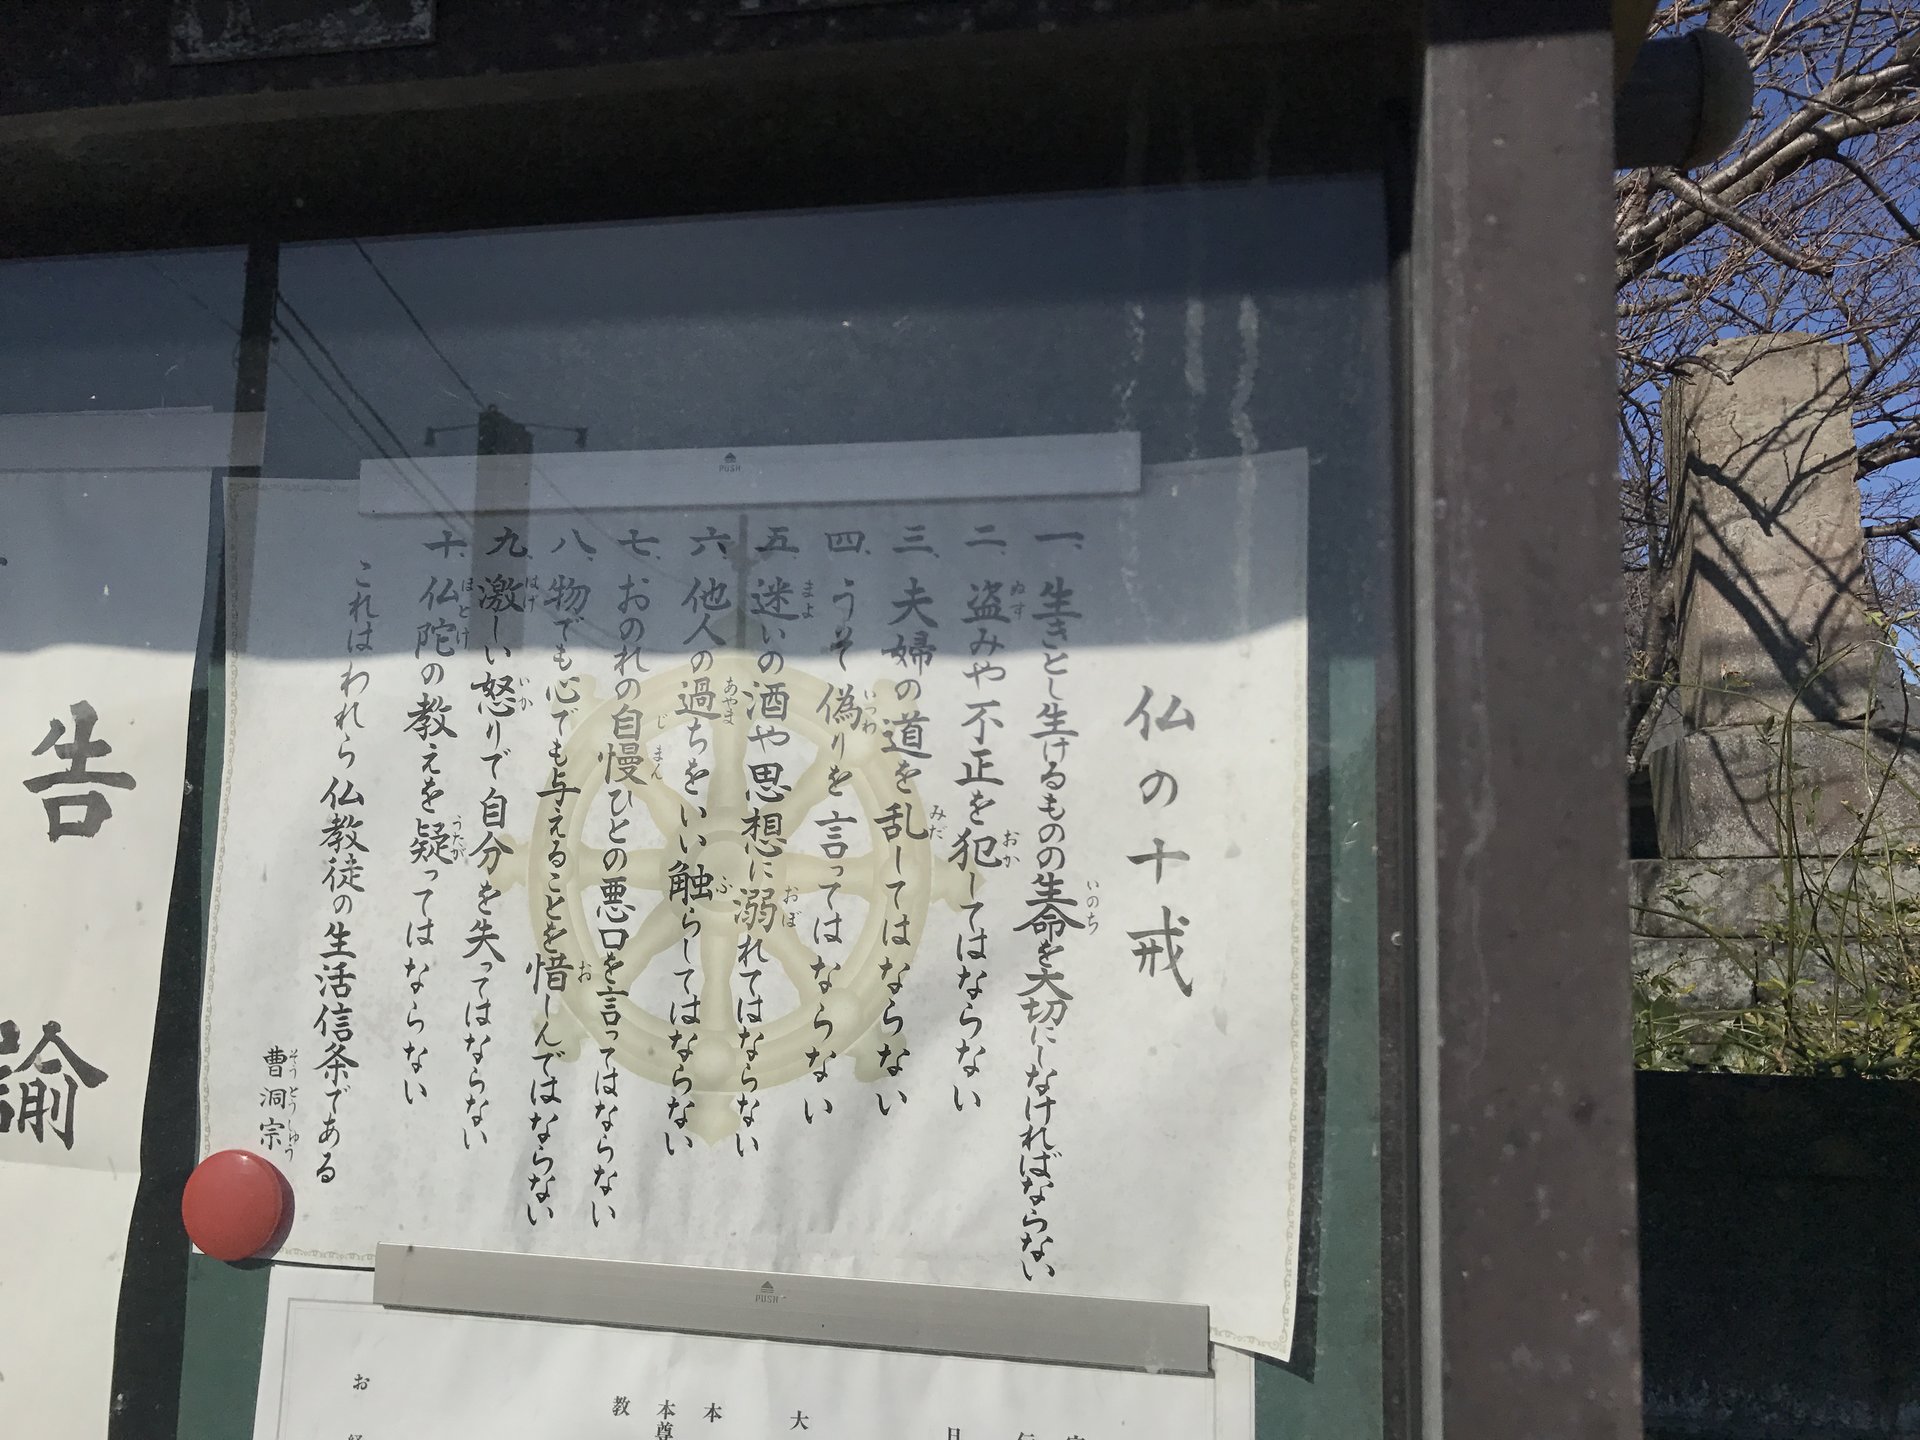 仏の十戒
一、生きとし生けるものの生命を大切にしなければならない
いのち
二、盗みや不正を犯してはならない
ぬす
おか
三、夫婦の道を乱してはならない
みだ
四、うそ偽りを言ってはならない
いつわ
五、迷いの酒や思想に溺れてはならない
まよ
おぼ
六、他人の過ちをいい触らしてはならない
あやま
ふ
七、おのれの自慢ひとの悪口を言ってはならない
じまん
八、物でも心でも与えることを惜しんではならない
お
九、激しい怒りで自分を失ってはならない
はげ
いか
十、仏陀の教えを疑ってはならない
ほとけ
うたが
これはわれら仏教徒の生活信条である
曹洞宗
そうとうしゅう
告諭
PUSH
PUSH
大
本
本尊
教
お